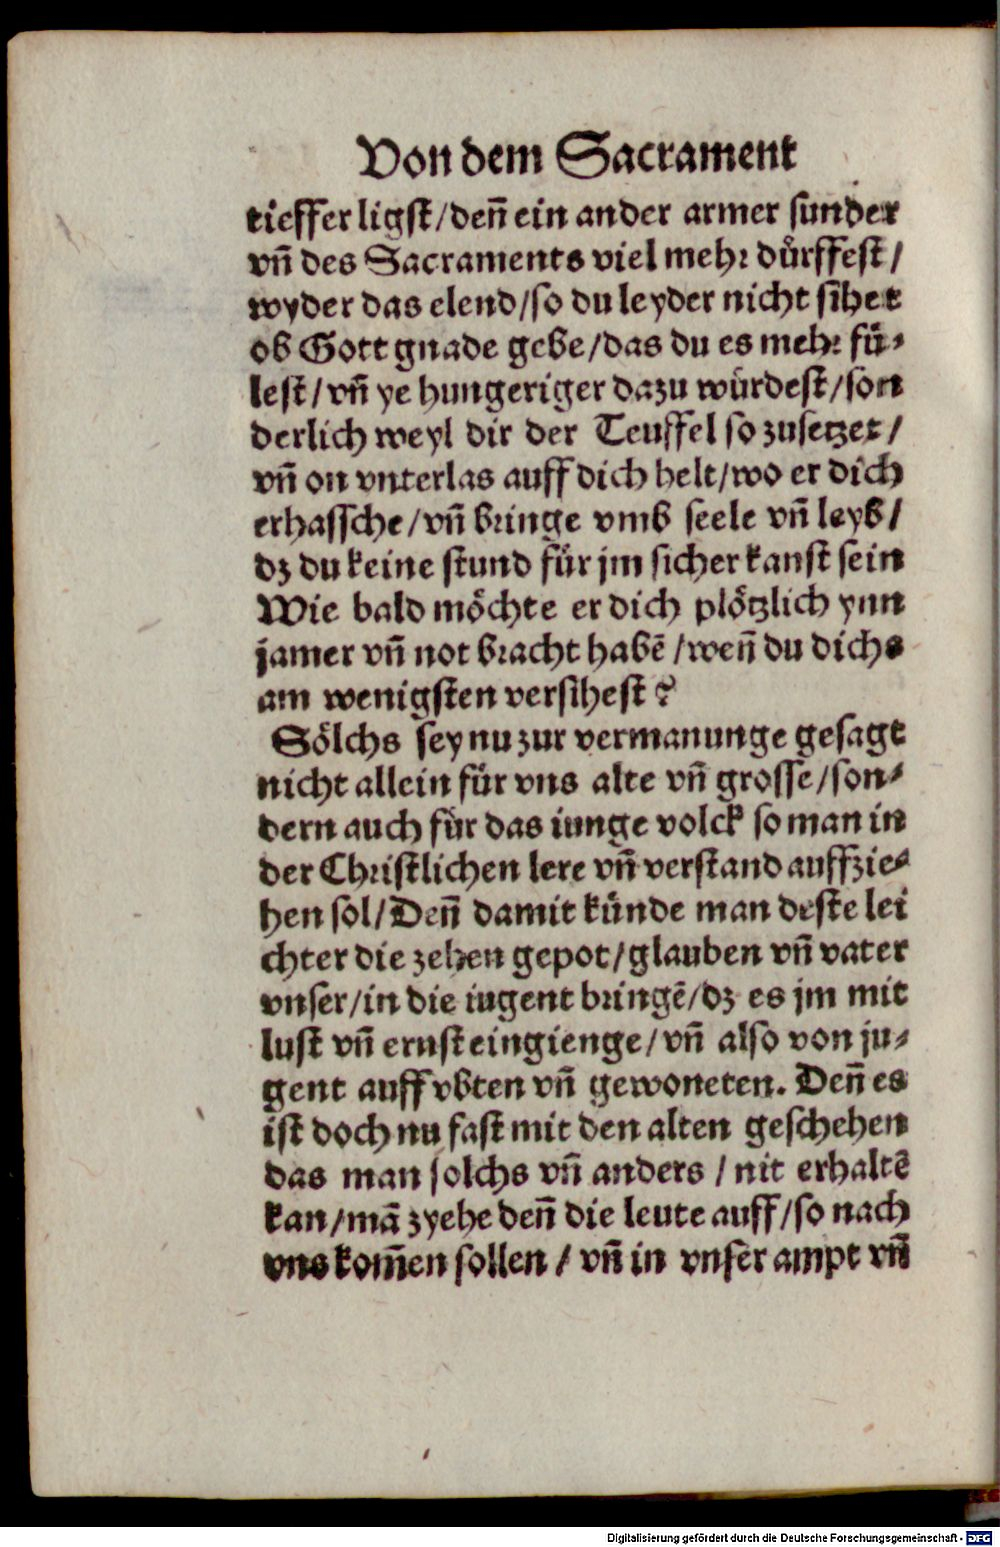 Von dem Sacrament
tieffer ligst/denñ ein ander armer sunder
vñ des Sacraments viel mehr dürffest/
wyder das elend/so du leyder nicht sihet
ob Gott gnade gebe/das du es mehr fü-
lest/vñ ye hungeriger dazu würdest/son
derlich weyl dir der Teuffel so zusetzet/
vñ on vnterlas auff dich helt/wo er dich
erhassche/vñ bringe vmb seele vñ leyb/
dz du keine stund für jm sicher kanst sein
Wie bald möchte er dich plötzlich ynn
jamer vñ not bracht habē/weñ du dichs
am wenigsten versihest?
Sölchs sey nu zur vermanunge gesagt
nicht allein für vns alte vñ grosse/son-
dern auch für das iunge volck so man in
der Christlichen lere vñ verstand auffzie-
hen sol/Deñ damit künde man deste lei
chter die zehen gepot/glauben vñ vater
vnser/in die iugent bringē/dz es jm mit
lust vñ ernst eingienge/vñ also von ju-
gent auff vbten vñ gewoneten. Deñ es
ist doch nu fast mit den alten geschehen
das man solchs vñ anders/nit erhaltē
kan/mā zyehe deñ die leute auff/so nach
vns kom̄en sollen/vñ in vnser ampt vñ
Digitalisierung gefördert durch die Deutsche Forschungsgemeinschaft - DFG